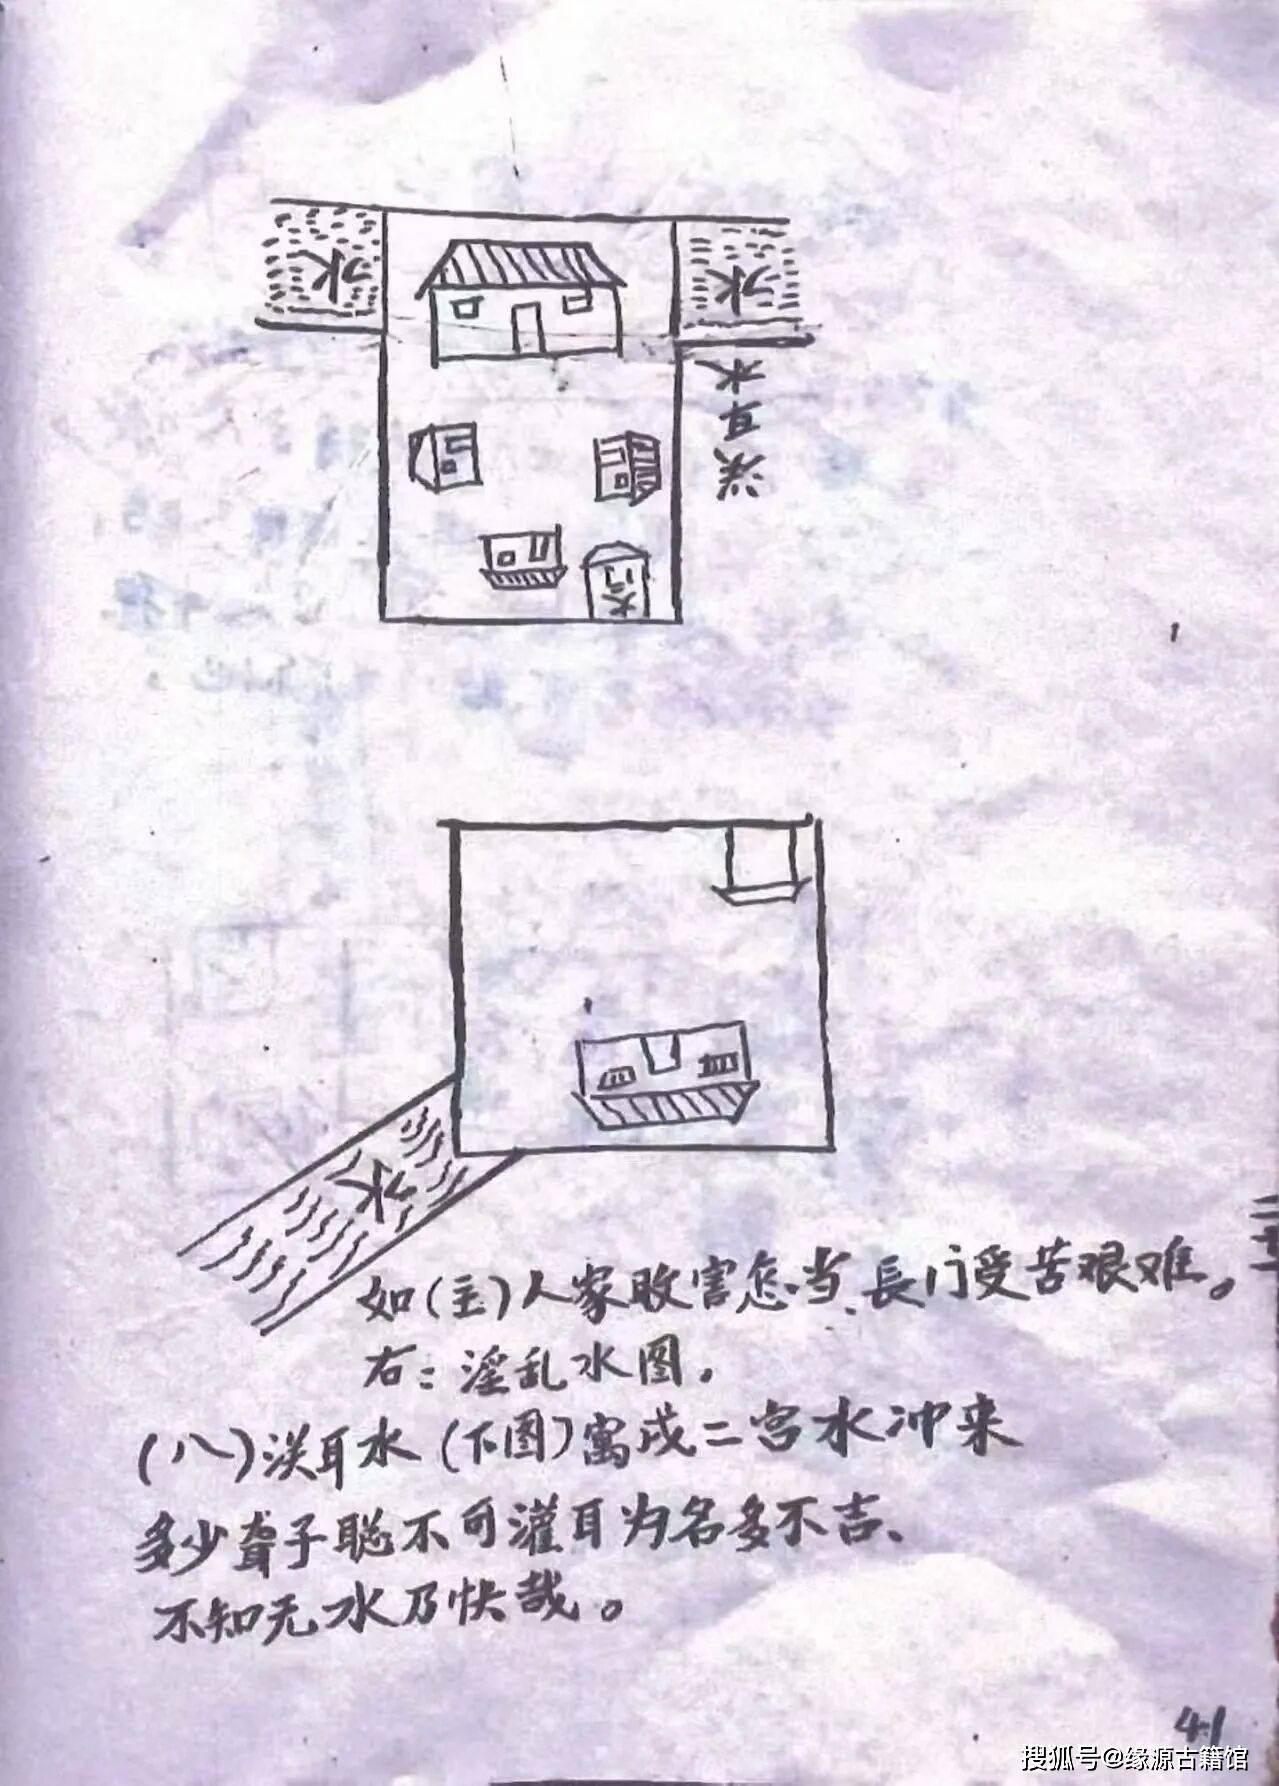 水
水
淡耳水
大门
水
如(主)人家败害怎当、長门受苦艰难。
右：淫乱水图。
(八)淡耳水(下图)寅戌二宫水冲来
多少聋子聪不可灌耳为名多不吉、
不知无水乃快哉。
41
搜狐号@缘源古籍馆